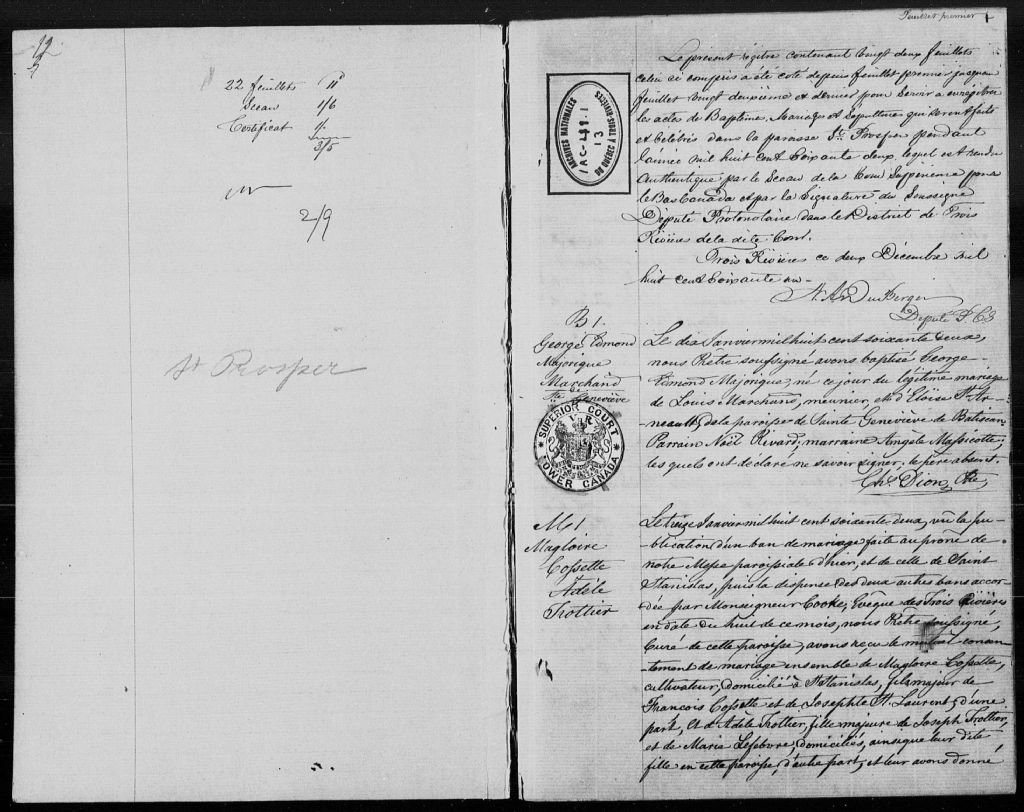 22 feuillets 11d
Sceau 1/6
Certificat 1/.
3/5
2/9
St Prosper
Feuillet premier 1
Le présent régitre contenant vingt deux feuillets
celui ci compris a été coté depuis feuillet premier jusquau
feuillet vingt deuxième et dernier pour servir a enregistrer
les actes de Baptême, Mariages et Sepulture qui seront faits
et célébrés dans la paroisse St. Prosper pendant
lannée mil huit cent soixante deux, lequel est rendu
authentique par le Sceau de la Cour Supérieure pour
le Bas Canada et par la Signature du Soussigné
Député Protonotaire dans le District de Trois
Rivières de la dite Cour.
Trois Rivières ce deux Décembre mil
huit cent soixante un -
Député P. C S
ARCHIVES NATIONALES
DU QUÉBEC À TROIS-RIVIÈRES
13
B 1.
George Edmond
Majorique
Marchand
Ste Geneviève
SUPERIOR COURT
V R
LOWER CANADA
Le dix Janvier mil huit cent soixante deux,
nous Prêtre soussigné avons baptisé George
Edmond Majorique, né ce jour du légitime mariage
de Louis Marchand, meunier, et d'Eloïse St. Ar-
neault, de la paroisse de Sainte Geneviève de Batiscan.
Parrain Noël Rivard, marraine Angèle Massicotte,
les quels ont déclaré ne savoir signer, le père absent.
Chs. Dion, Ptre
M 1
Magloire
Cossette
Adéle
Trottier
Le treize Janvier mil huit cent soixante deux, vu la pu-
blication d'un ban de mariage faite au prône de
notre Messe paroissiale d'hier, et de celle de Saint
Stanislas, puis la dispense des deux autres bans accor-
dée par Monseigneur Cooke, Evêque des Trois Rivières
en date du huit de ce mois, nous Prêtre soussigné,
Curé de cette paroisse, avons reçu le mutuel consen-
tement de mariage ensemble de Magloire Cossette,
cultivateur, domicilié à St. Stanislas, fils majeur de
François Cossette et de Josephte St. Laurent, d'une
part, Et d'Adèle Trottier, fille majeure de Joseph Trottier,
et de Marie Lefebvre, domiciliés, ainsi que leur dite
fille en cette paroisse, d'autre part, et leur avons donné